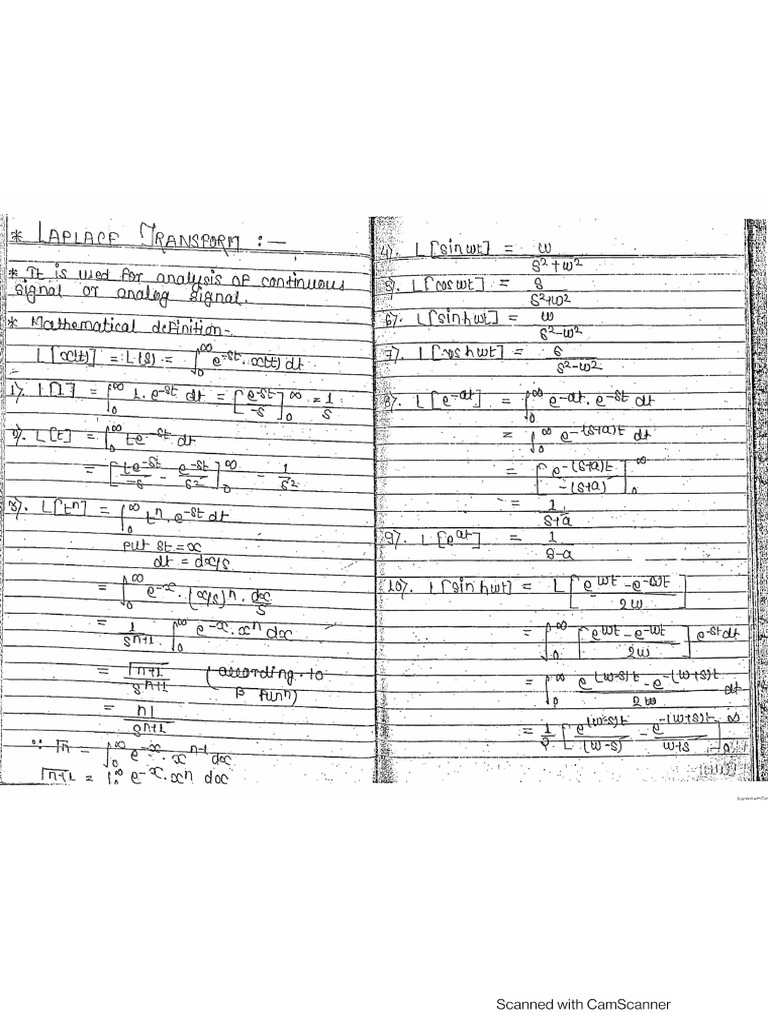 * LAPLACE TRANSFORM :-
* It is used for analysis of continuous
signal or analog signal.
* Mathematical definition-
L[x(t)] = L(s) = ∫₀^∞ e^-st . x(t) dt
1). L[1] = ∫₀^∞ 1. e^-st dt = [e^-st / -s]₀^∞ = 1/s
2). L[t] = ∫₀^∞ te^-st dt
= [te^-st / -s - e^-st / s²]₀^∞ = 1/s²
3). L[tⁿ] = ∫₀^∞ tⁿ. e^-st dt
put st = x
dt = dx/s
= ∫₀^∞ e^-x . (x/s)ⁿ . dx/s
= 1/s^n+1 . ∫₀^∞ e^-x. xⁿ dx
= Γn+1 / s^n+1 (according to
β funⁿ)
= n! / s^n+1
∵ Γn = ∫₀^∞ e^-x . x^n-1 dx
Γn+1 = ∫₀^∞ e^-x . xⁿ dx
4). L[sinwt] = w / s²+w²
5). L[coswt] = s / s²+w²
6). L[sinhwt] = w / s²-w²
7). L[coshwt] = s / s²-w²
8). L[e^-at] = ∫₀^∞ e^-at. e^-st dt
= ∫₀^∞ e^-(s+a)t dt
= [e^-(s+a)t / -(s+a)]₀^∞
= 1 / s+a
9). L[e^at] = 1 / s-a
10). L[sinhwt] = L[e^wt - e^-wt / 2w]
= ∫₀^∞ [e^wt - e^-wt / 2w] e^-st dt
= ∫₀^∞ e^(w-s)t - e^-(w+s)t / 2w dt
[e^(w-s)t / (w-s) - e^-(w+s)t / w+s]₀^∞
Scanned with CamScanner